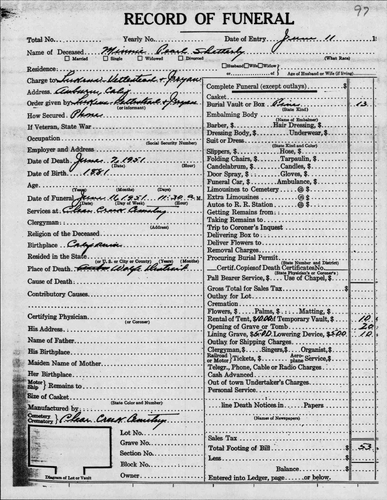 97
RECORD OF FUNERAL
Total No. Yearly No. Date of Entry June 11 1
Name of Deceased Minnie Pearl
Married Single Widowed Divorced (What Race)
Residence
Husband Wife of
Age of Husband or Wife (if living)
Charge to
Address Auburn, Calif
Order given by
(or informant)
How Secured Phone
If Veteran, State War
Occupation
(Social Security Number)
Employer and Address
Date of Death June 7, 1951
Date of Birth 1881
Age
(Years) (Months) (Days)
Date of Funeral June 11, 1951. 11:30 A.M.
(Date) (Day of Week) (Hour)
Services at Clear Creek Cemetery
Clergyman
(Address)
Religion of the Deceased
Birthplace California
Resided in the State
(or U. S. or City or County) (Years) (Months)
Place of Death
Cause of Death
Contributory Causes
Certifying Physician
(or Coroner)
His Address
Name of Father
His Birthplace
Maiden Name of Mother
Her Birthplace
Motor Ship Remains to
Size of Casket
(State Color and Number)
Manufactured by
Cemetery Crematory Clear Creek Cemetery
Lot No.
Grave No.
Section No.
Block No.
Owner
Diagram of Lot or Vault
Complete Funeral (except outlays) $
Burial Vault or Box Pine 13
(State Kind)
Embalming Body
(Name of Embalmer)
Barber, $ Hair Dressing, $
Dressing Body, $ Underwear, $
Suit or Dress
(State Kind and Color)
Slippers, $ Hose, $
Folding Chairs, $ Tarpaulin, $
Candelabrum, $ Candles, $
Door Spray, $ Gloves, $
Funeral Car, $ Ambulance, $
Limousines to Cemetery @ $
Extra Limousines @ $
Autos to R. R. Station @ $
Getting Remains from
Taking Remains to
Trip to Coroner's Inquest
Delivering Box to
Deliver Flowers to
Removal Charges
(State Number and District)
Procuring Burial Permit
Certif. Copies of Death Certificate No.
(State Physician's or Coroner's)
Pall Bearer Service, $ Use of Chapel, $
Gross Total for Sales Tax $
Outlay for Lot
Cremation
Flowers, $ Palms, $ Matting, $
Rental of Tent, $10.00 Temporary Vault, $ 10
Opening of Grave or Tomb $ 20
Lining Grave, $5.00 Lowering Device, $5.00 10
Outlays for Shipping Charges
Clergyman, $ Singers, $ Organist, $
Railroad or Motor Tickets, $ Aeroplane Service, $
Telegr., Phone, Cable or Radio Charges
Cash Advanced
Out of town Undertaker's Charges
Personal Service
line Death Notices in Papers
(Names of Newspapers)
Sales Tax
Total Footing of Bill $ 53
Less
Balance $
Entered into Ledger, page or below.